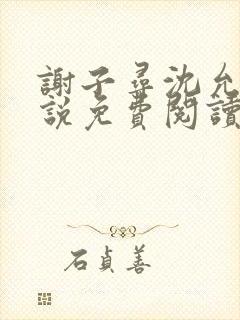 謝子尋沈允
說免費閱讀
石貞善